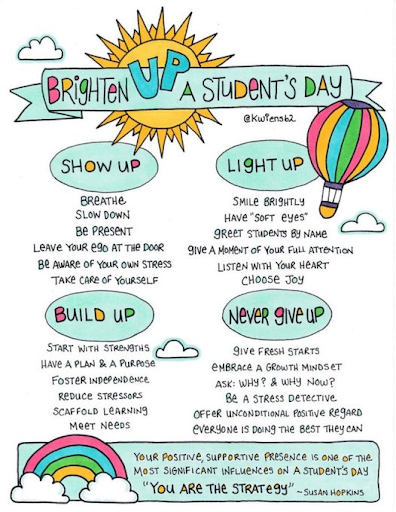 BRIGHTEN UP A STUDENT'S DAY
@KWIENS62
SHOW UP
BREATHE
SLOW DOWN
BE PRESENT
LEAVE YOUR EGO AT THE DOOR
BE AWARE OF YOUR OWN STRESS
TAKE CARE OF YOURSELF
LIGHT UP
SMILE BRIGHTLY
HAVE "SOFT EYES"
GREET STUDENTS BY NAME
GIVE A MOMENT OF YOUR FULL ATTENTION
LISTEN WITH YOUR HEART
CHOOSE JOY
BUILD UP
START WITH STRENGTHS
HAVE A PLAN & A PURPOSE
FOSTER INDEPENDENCE
REDUCE STRESSORS
SCAFFOLD LEARNING
MEET NEEDS
NEVER GIVE UP
GIVE FRESH STARTS
EMBRACE A GROWTH MINDSET
ASK: WHY? & WHY NOW?
BE A STRESS DETECTIVE
OFFER UNCONDITIONAL POSITIVE REGARD
EVERYONE IS DOING THE BEST THEY CAN
YOUR POSITIVE, SUPPORTIVE PRESENCE IS ONE OF THE
MOST SIGNIFICANT INFLUENCES ON A STUDENT'S DAY
"YOU ARE THE STRATEGY" ~SUSAN HOPKINS